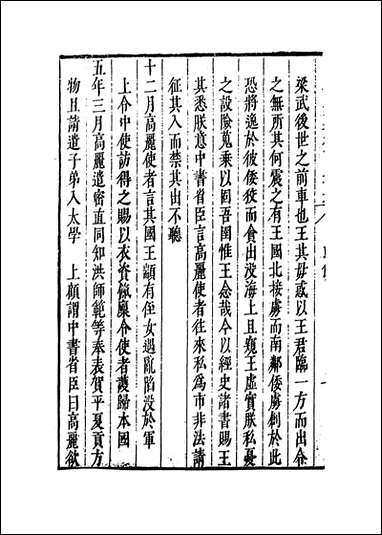 梁武後世之前車也王其毋惑以王君臨一方而出令
之無所其何震之有王國北接虜而南鄰倭虜創於此
恐將逸於彼倭狡而貪出没海上且窺王虛實朕私憂
之設險蒐乗以固吾圉惟王念哉今以經史諸書賜王
其悉朕意中書省臣言高麗使者往來私爲市非法請
征其入而禁其出不聽
十二月高麗使者言其國王顓有侄女遇亂陷没於軍
上令中使訪得之賜以衣資餼廩令使者護歸本國
五年三月高麗遣密直同知洪師範等奉表賀平夏貢方
物且請遣子弟入太學　上顧謂中書省臣曰高麗欲